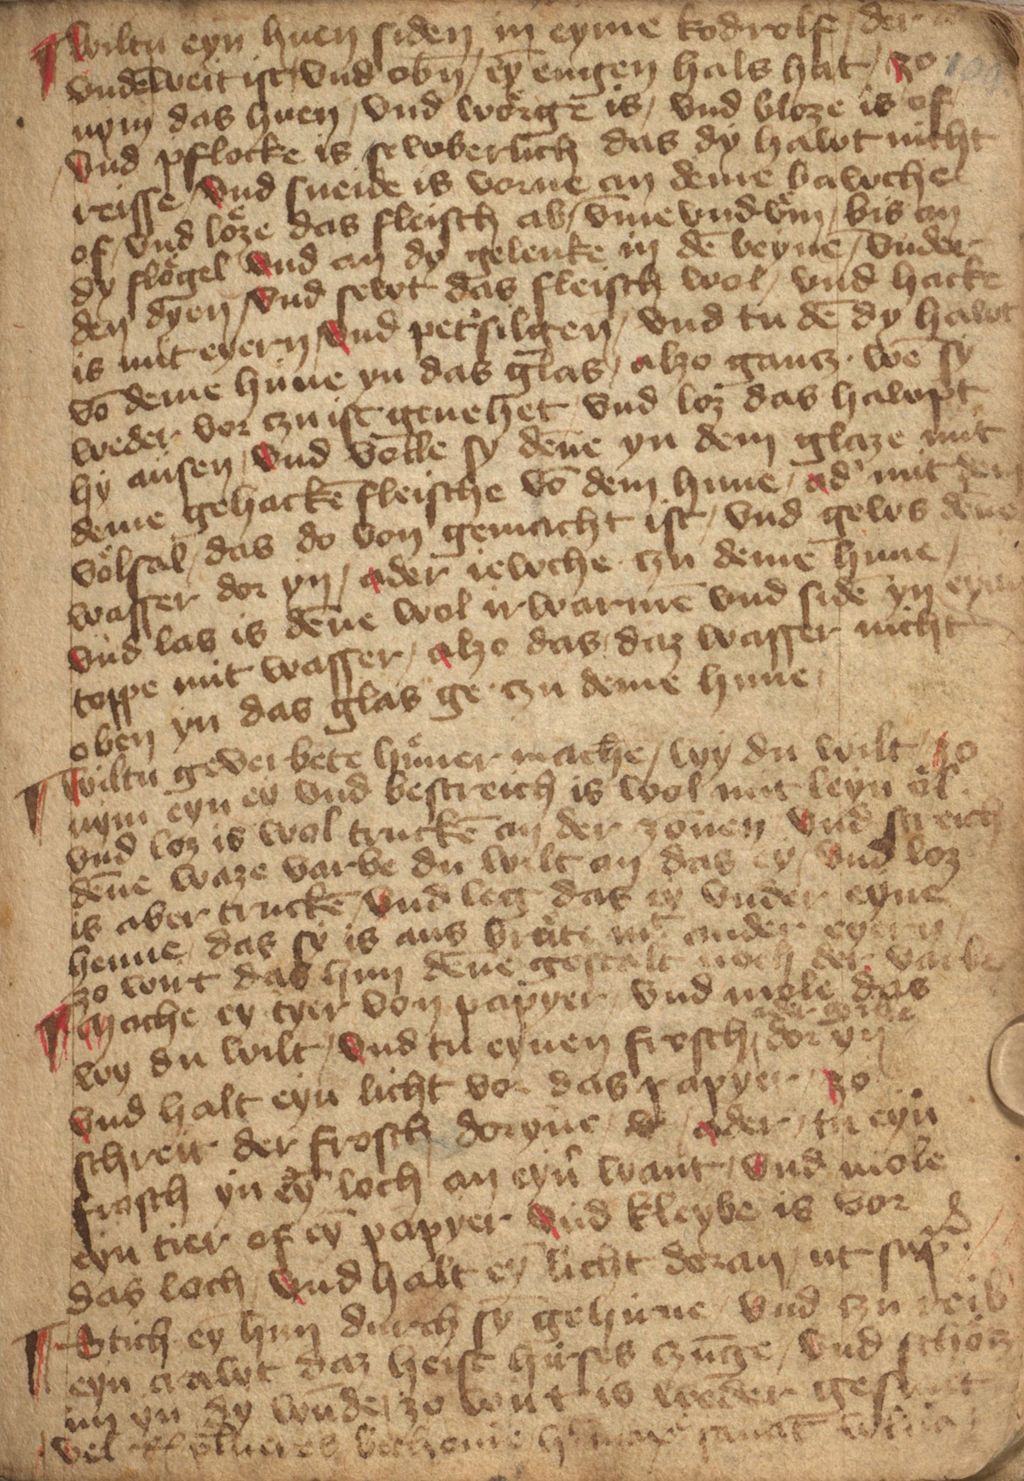 Wiltu eyn huen siden in eyme kodrolf der
vndē weit ist vnd obn ey̅ engen hals hat zo
nym das huen vnd wörge is vnd bloze is of
vnd pflocke is sewberlich das dy hawt nicht
reisse vnd sneide is vorne an deme bawche
of vnd löze das fleisch ab vm̅e vnd vm̅ bis an
dy flögel vnd an dy gelenke in dē beyne vnder
den dyen vnd sewt das fleisch wol vnd hacke
is mit eyern vnd pet'silgen vnd tu dē dy hawt
vō deme hune yn das glas alzo gancz wē sy
weder vor czu ist genehet vnd loz das hawpt
hy ausen vnd völle sy dēne yn dem glaze mit
deme gehackē fleische vō dem hune ad' mit dem
völsal das do von gemacht ist vnd gews dēne
wasser dor yn ader iewche czu deme hune
vnd las is dēne wol irwarmē vnd sidē yn eym
toppe mit wasser alzo das daz wasser nicht
oben yn das glas ge czu deme hune
wiltu geverbete hüner mache wy du wilt zo
nym eyn ey vnd bestreich is wol mit leyn öl
vnd loz is wol truckē an der zonen vnd streich
dēne waze varbe du wilt an das ey vnd loz
is aber truckē vnd leg das ey vnder eyne
henne das sy is aus bröte mit ander eyern
zo wirt das hun dēne gestalt noch der varbe
Mache ey tyer von papyer vnd mole das
wy du wilt vnd tu eynen frosch dor yn
vnd halt eyn licht vor das papyer zo
schreit der frosch doryne ader tu eyn
frosch yn ey̅ loch an eyn want vnd mole
eyn tier of ey̅ papyer vnd kleybe is vor
das loch vnd halt ey̅ licht doran ut sup̄
Stich ey hun durch sy̅ gehirne vnd czu reib
eyn crawt daz heist hirses czūge vnd
im yn dy wūde zo wirt is weder gesunt
vel